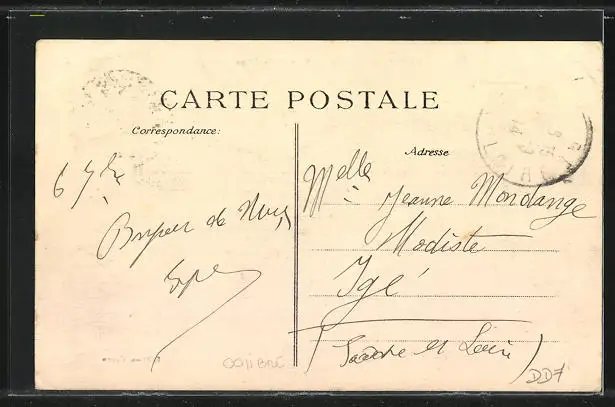 CARTE POSTALE
Correspondance:
Adresse
6 7bre
Bonjour de Nuits
Melle
Jeanne Mondange
Modiste
Igé
(Saône et Loire)
DD7